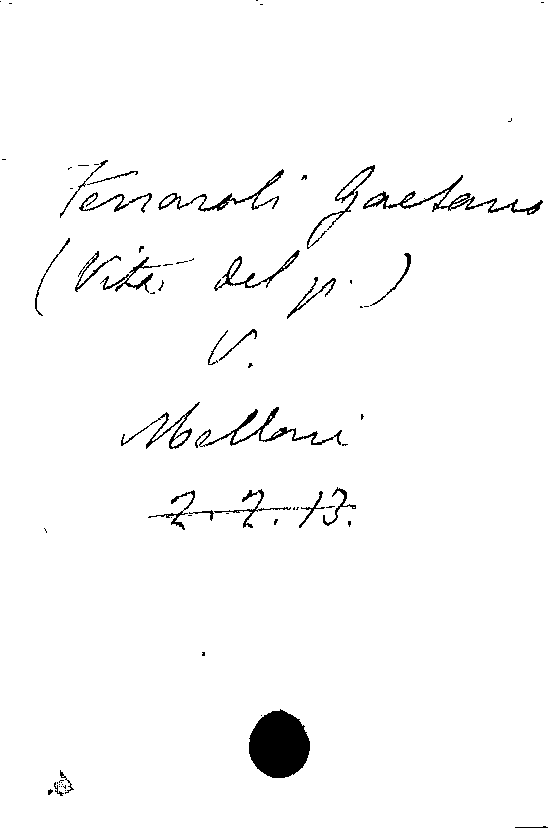 Ferraroli Gaetano
(Vita del p.)
V.
Melloni
2. 2. 13.